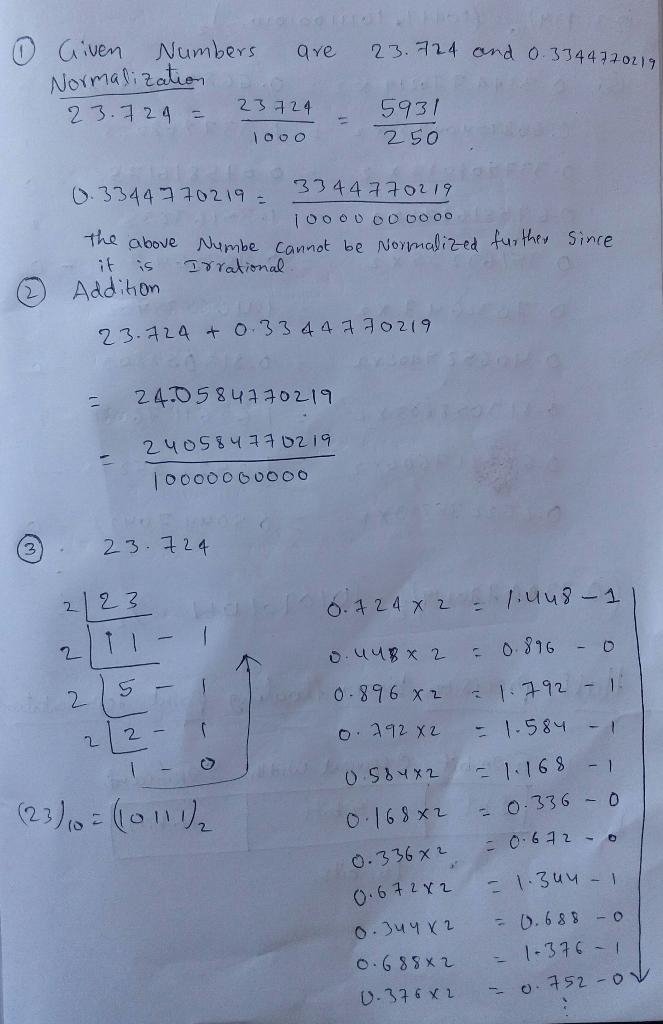 ① Given Numbers are 23.724 and 0.33447770219
Normalization
23.724 = 23724/1000 = 5931/250
0.33447770219 = 33447770219/100000000000
The above Numbe cannot be Normalized further Since
it is Irrational.
② Addition
23.724 + 0.33447770219
= 24.0584770219
= 240584770219/10000000000
③ . 23.724
2|23
2|11 - 1
2|5 - 1
2|2 - 1
1 - 0
(23)10 = (10111)2
0.724 x 2 = 1.448 - 1
0.448 x 2 = 0.896 - 0
0.896 x 2 = 1.792 - 1
0.792 x 2 = 1.584 - 1
0.584 x 2 = 1.168 - 1
0.168 x 2 = 0.336 - 0
0.336 x 2 = 0.672 - 0
0.672 x 2 = 1.344 - 1
0.344 x 2 = 0.688 - 0
0.688 x 2 = 1.376 - 1
0.376 x 2 = 0.752 - 0
⋮